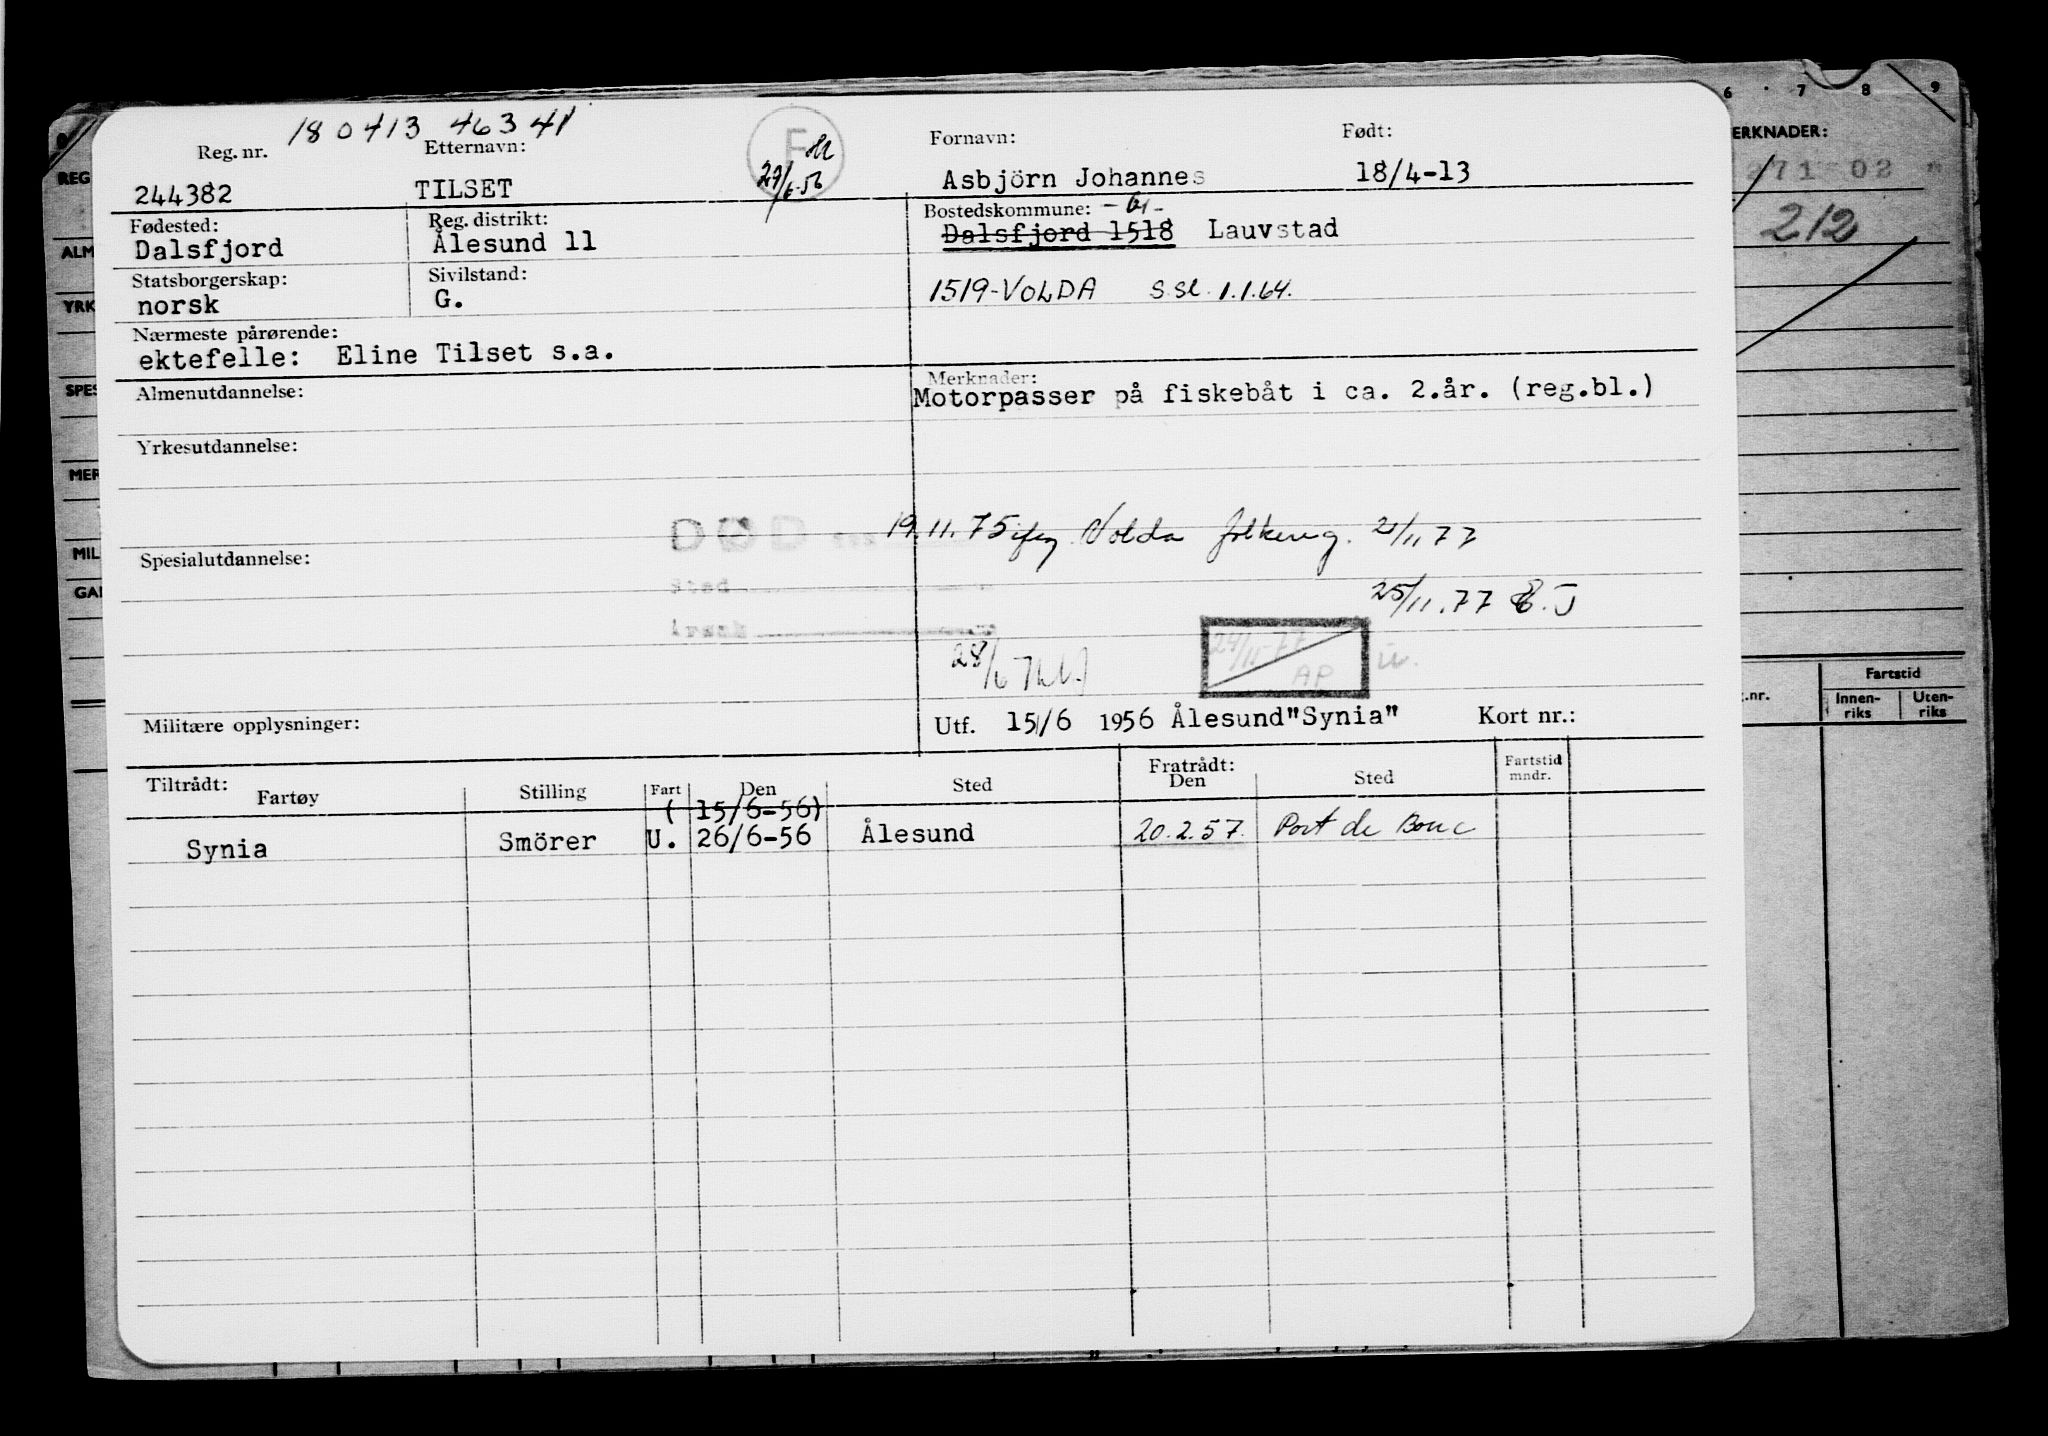 180413 46341
Reg. nr. Etternavn: Fornavn: Født:
244382 TILSET 27/6-56 Asbjörn Johannes 18/4-13
Fødested: Reg. distrikt: Bostedskommune:
Dalsfjord Ålesund 11 Dalsfjord 1518 Lauvstad
Statsborgerskap: Sivilstand:
norsk G. 1519-VOLDA s.sl. 1.1.64.
Nærmeste pårørende:
ektefelle: Eline Tilset s.a.
Almenutdannelse: Merknader:
Motorpasser på fiskebåt i ca. 2.år. (reg.bl.)
Yrkesutdannelse:
DØD 19.11.75 iføg Volda folkereg. 21/11 77
Spesialutdannelse:
Sted
Årsak
25/11.77
28/6
24/11-77
AP
Militære opplysninger: Utf. 15/6 1956 Ålesund "Synia" Kort nr.:
Tiltrådt: Fratrådt: Fartstid
Fartøy Stilling Fart Den Sted Den Sted mndr.
(15/6-56)
Synia Smörer U. 26/6-56 Ålesund 20.2.57. Port de Bouc
6 7 8 9
ERKNADER:
271 02
212
REG
ALM
YRK
SPES
MER
MIL
GAI
.nr. Fartstid
Innen-riks Uten-riks